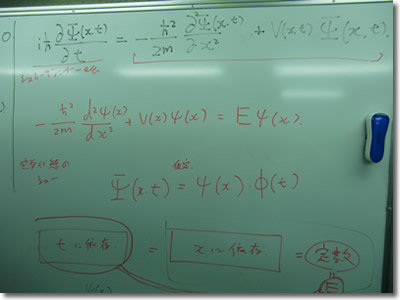 iħ ∂Ψ(x,t)/∂t = -ħ²/2m ∂²Ψ(x,t)/∂x² + V(x,t) Ψ(x,t)
-ħ²/2m d²ψ(x)/dx² + V(x)ψ(x) = Eψ(x).
仮定
Ψ(x,t) = ψ(x)·Φ(t)
tに依存. = xに依存. = 定数
E
ψ(x)